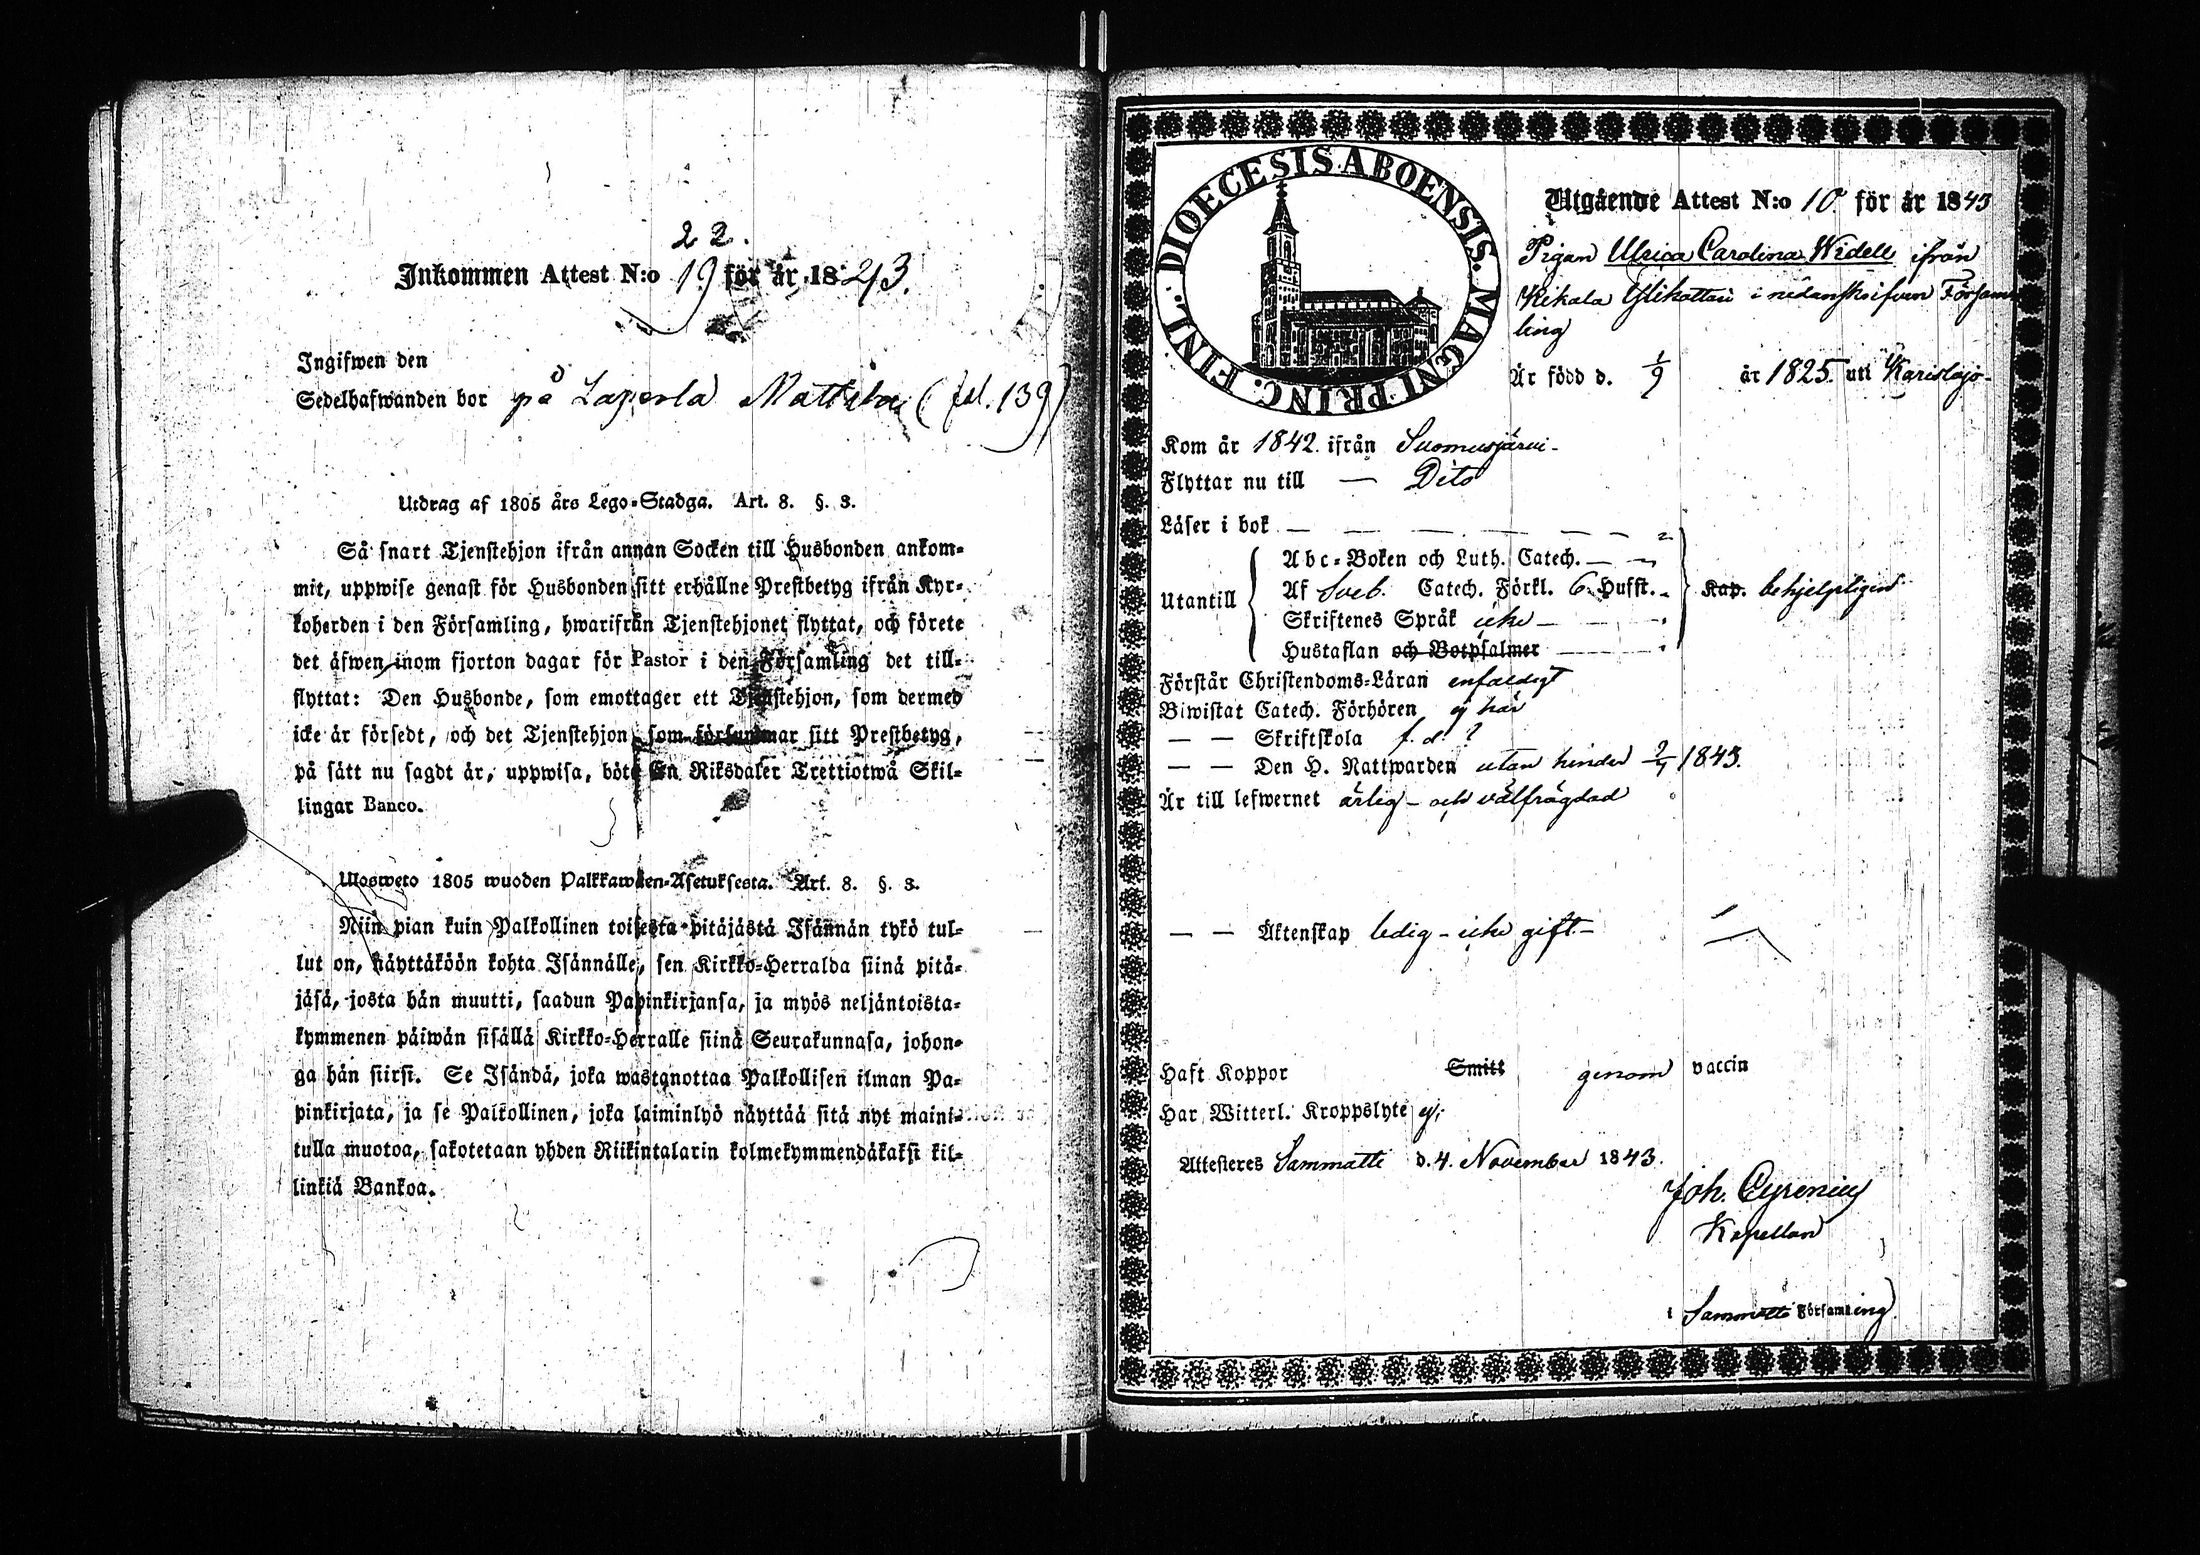 22.
Inkommen Attest N:o 19 för år 1843.
Ingifwen den
Sedelhafwanden bor på Laperla Mattila (fol. 139)
Utdrag af 1805 års Lego-Stadga. Art. 8. §. 3.
Så snart Tjenstehjon ifrån annan Socken till Husbonden ankom-
mit, uppwise genast för Husbonden sitt erhållne Prestbetyg ifrån Kyr-
koherden i den Församling, hwarifrån Tjenstehjonet flyttat, och förete
det äfwen inom fjorton dagar för Pastor i den Församling det till-
flyttat: Den Husbonde, som emottager ett Tjenstehjon, som dermed
icke är försedt, och det Tjenstehjon som försummar sitt Prestbetyg,
på sätt nu sagdt är, uppwisa, böte En Riksdaler Trettiotwå Skil-
lingar Banco.
Ulosweto 1805 wuoden Palkkawäen-Asetuksesta. Art. 8. §. 3.
Niin pian kuin Palkollinen toisesta pitäjästä Isännän tykö tul-
lut on, näyttäköön kohta Isännälle, sen Kirkko-Herralda siinä pitä-
jäsä, josta hän muutti, saadun Papinkirjansa, ja myös neljäntoista-
kymmenen päiwän sisällä Kirkko-Herralle siinä Seurakunnasa, johon-
ga hän siirsi. Se Isändä, joka wastanottaa Palkollisen ilman Pa-
pinkirjata, ja se Palkollinen, joka laiminlyö näyttää sitä nyt maini-
tulla muotoa, sakotetaan yhden Riikintalarin kolmekymmendäkaksi kil-
linkiä Bankoa.
DIOECESIS ABOENSIS. MAGNI PRINC. FINL.
Utgående Attest N:o 10 för år 1843
Pigan Ulrica Carolina Widell ifrån
Kikala Ylikottari i nedanskrifven Försam
ling
Är född d. 1/9 år 1825. uti Karislojo
Kom år 1842. ifrån Suomusjärvi-
Flyttar nu till — Dito
Läser i bok
Abc-Boken och Luth. Catech.
Utantill Af Sveb. Catech. Förkl. 6 Hufst. Kap. behjelpligen
Skriftenes Språk icke
Hustaflan och Botpsalmer
Förstår Christendoms-Läran enfaldigt
Biwistat Catech. Förhören ej här
— — Skriftskola f. d. ?
— — Den H. Nattwarden utan hinder 2/7 1843.
Är till lefwernet ärlig - och välfrägdad
— — Äktenskap ledig - icke gift-
Haft Koppor Smitt genom vaccin
Har Witterl. Kroppslyte ej.
Attesteres Sammatti d. 4. November 1843.
Joh. Cyrenius
Kapellan
i Sammatti Församling